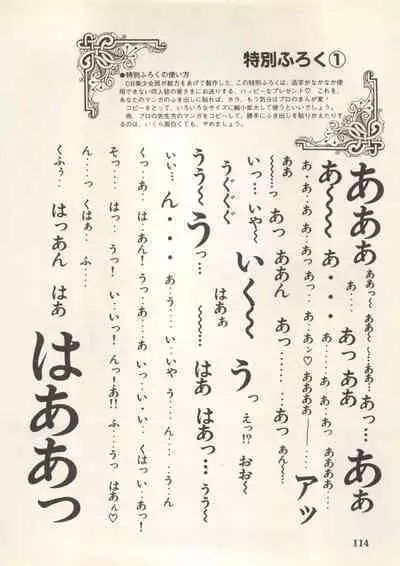 特別ふろく①
●特別ふろくの使い方
CB美少女団が総力をあげて製作した、この特別ふろくは、活字がなかなか使
用できない同人誌の皆さまにお送りする、ハッピーなプレゼント♡ これを、
あなたのマンガのふき出しに貼れば、ホラ、もう気分はプロのまんが家！
コピーをとって、いろいろなサイズに縮り拡大して使うといいでしょう。
尚、プロの先生方のマンガをコピーして、勝手にふき出しを貼りかえたりす
るのは、いくら面白くても、やめましょう。
あああ ああっ〜 ああ〜 〜…ああ… あっ… ああ
あ〜〜 あ・・・ あ… あっああ
ああ あ…あ…あっあっ…あ…あッ♡ ああああ── アッ
〜〜……っ あっ ああん あっ……… …あっ あん〜…
いっ… いや〜 いく〜 うっ えっ!? おお〜
うぐぐぐ はああ
うう〜 うっ… 〜〜〜… はあ はあっ… うう〜
いい… ん・・・ あ…う… い…いや う…ん… う…ん
くっ…あ… は…あん！ うっ…あ…あ いっ…い・い… くはっ い…あっ！
そっ…… はっ… うっ！ い…いっ！ んっ！あ!! ふ……うっ はあん♡
ん……っ くはぁ… ふ……
くふぅ… はっあん はあ
はああっ
114